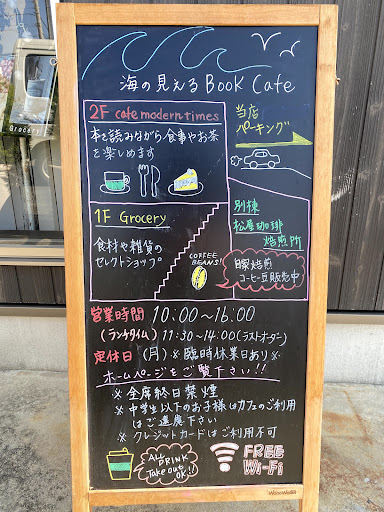 海の見える Book Cafe
2F cafe modern times
本を読みながら食事やお茶
を楽しめます
当店
パーキング
1F Grocery
食材や雑貨の
セレクトショップ。
COFFEE
BEANS!
別棟
松屋珈琲
焙煎所
自家焙煎
コーヒー豆販売中
営業時間 10:00~16:00
(ランチタイム) 11:30~14:00(ラストオーダー)
定休日 (月) ※臨時休業日あり※
ホームページをご覧下さい!!
※ 全席終日禁煙
※ 中学生以下のお子様はカフェのご利用
はご遠慮下さい
※ クレジットカードはご利用不可
ALL
DRINK
Take out
OK!!
FREE
Wi-Fi
Grocery